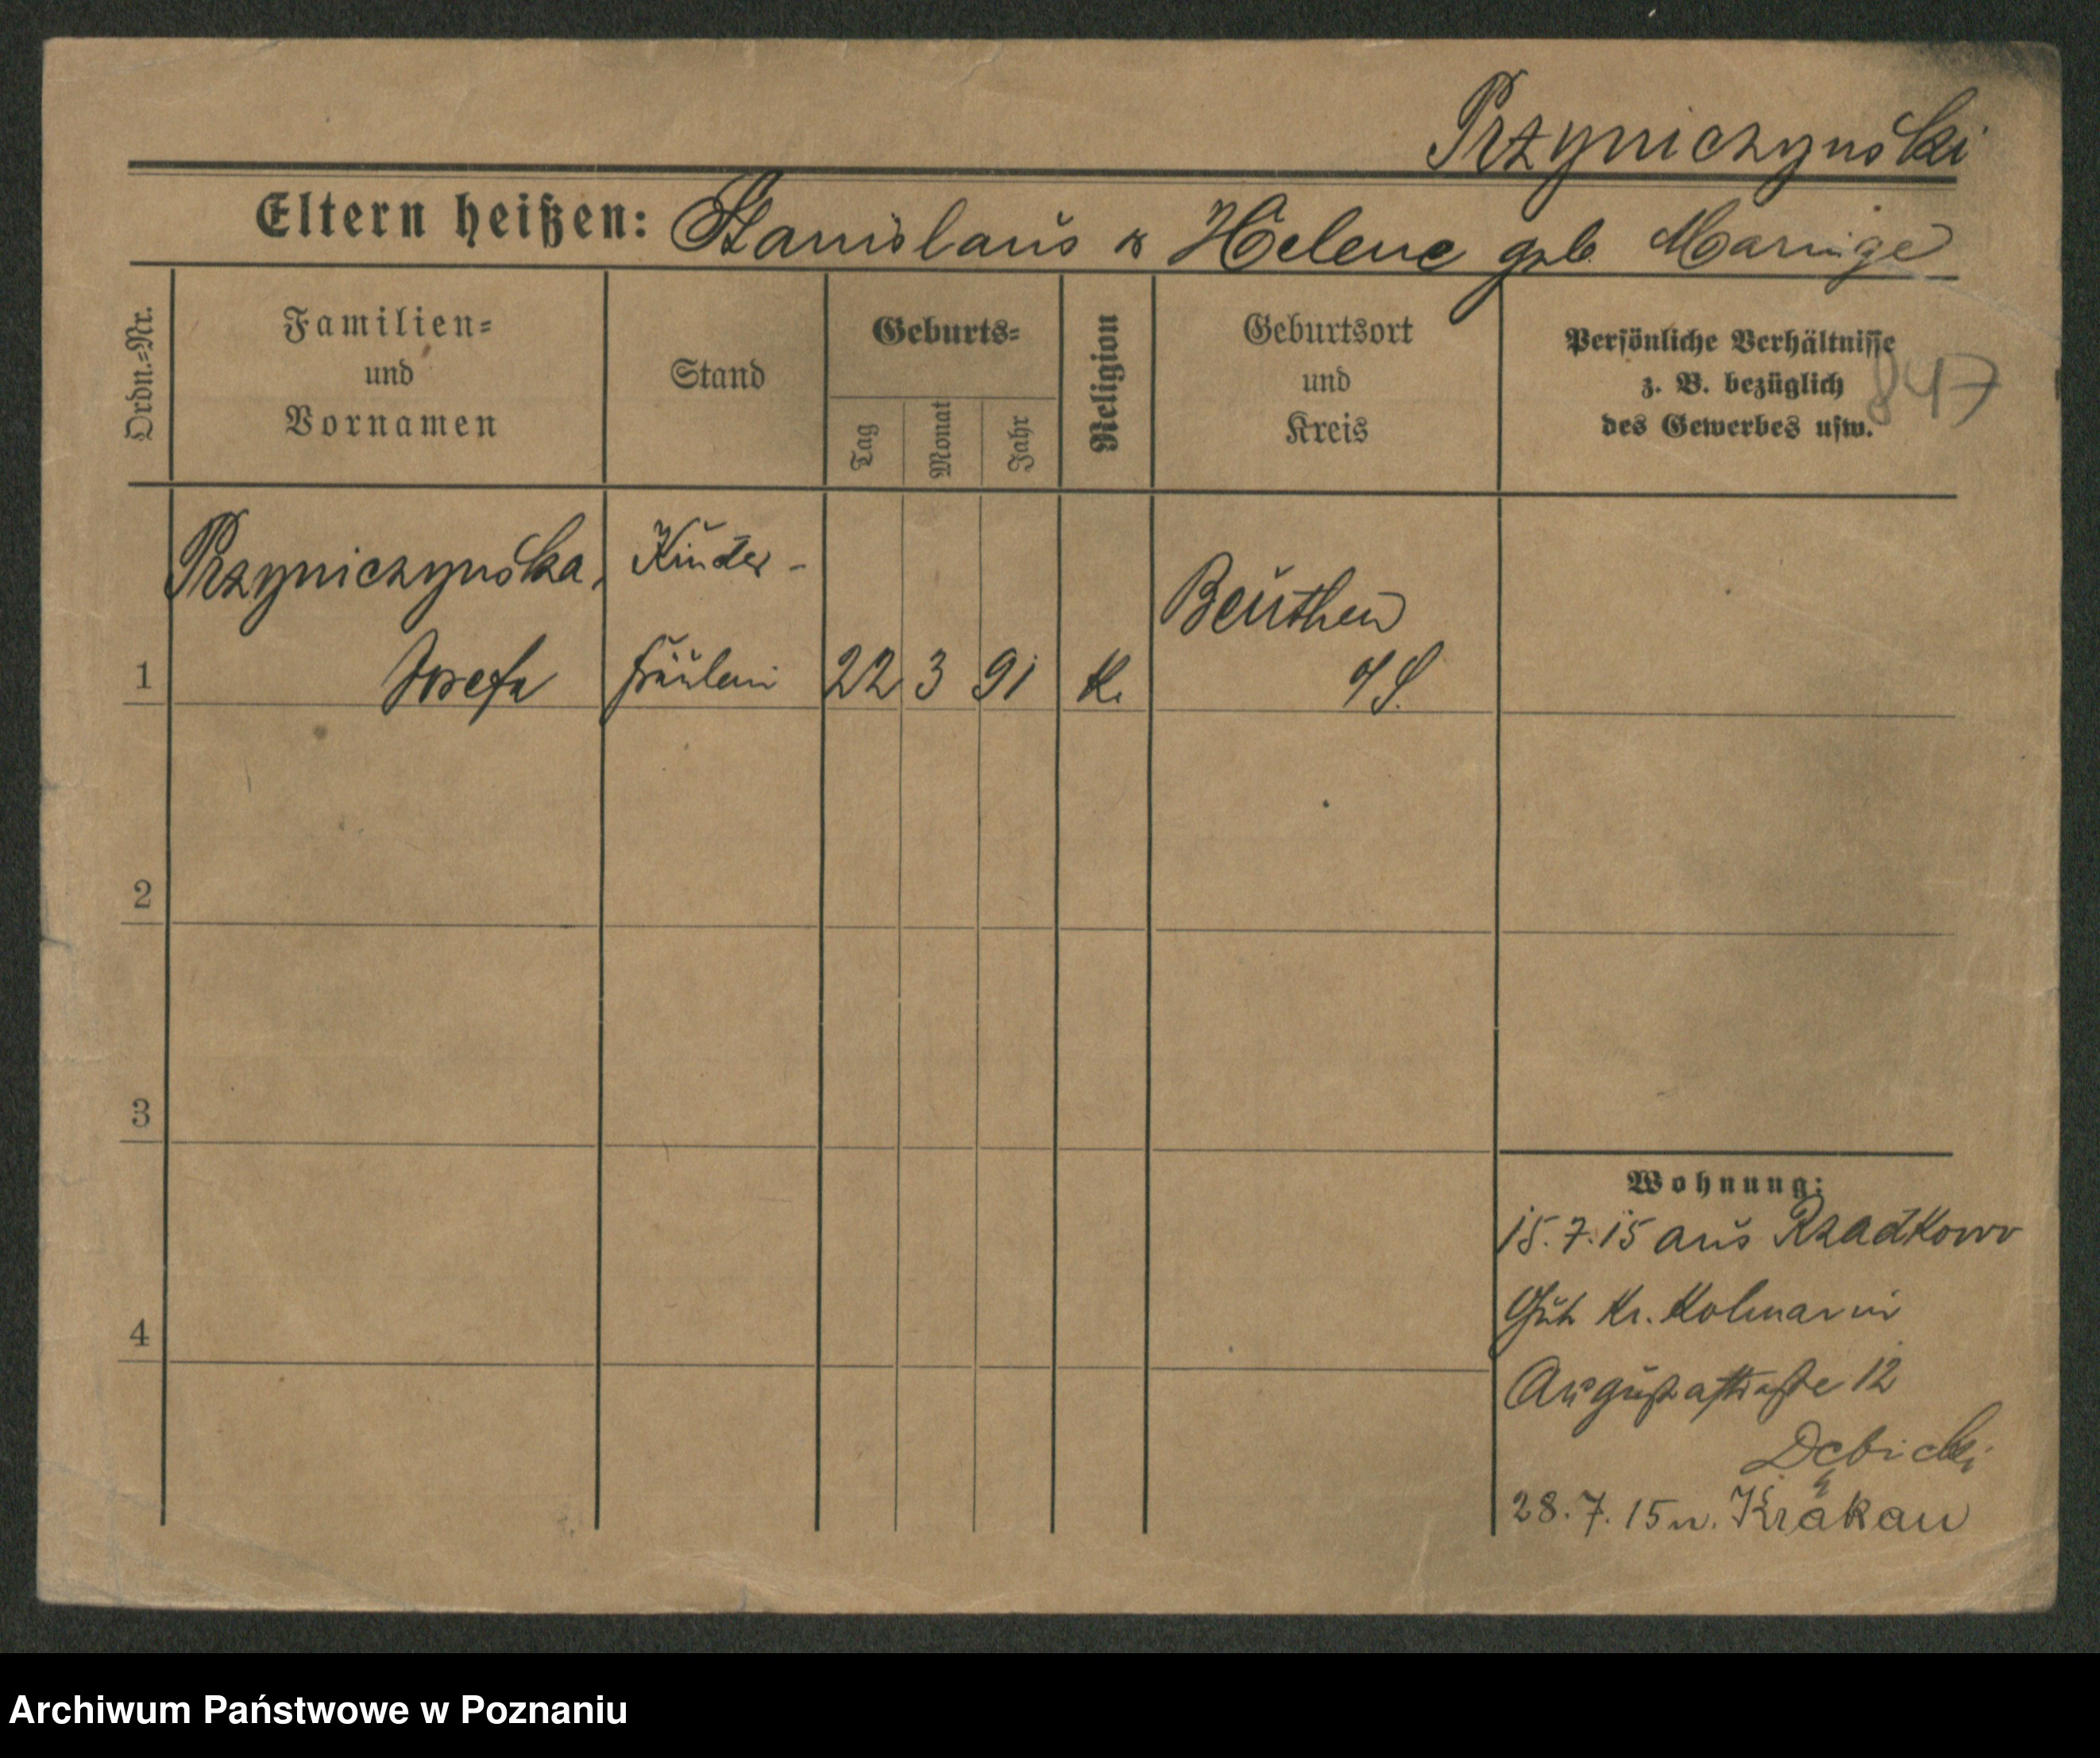 Przyniczynski
Eltern heißen: Stanislaus & Helene geb. Maringe
Ordn.=Nr.
Familien=
und
Vornamen
Stand
Geburts=
Tag
Monat
Jahr
Religion
Geburtsort
und
Kreis
Persönliche Verhältnisse
z. B. bezüglich
des Gewerbes usw.
847
Przyniczynska, Kinder-
Beuthen
1 Josefa fräulein 22 3 91 K.
2
3
4
Wohnung:
15.7.15 aus Rzadkowo
Gut Kr. Kolmar in
Augustastraße 12
Dębicki
28.7.15 n. Krakau
Archiwum Państwowe w Poznaniu